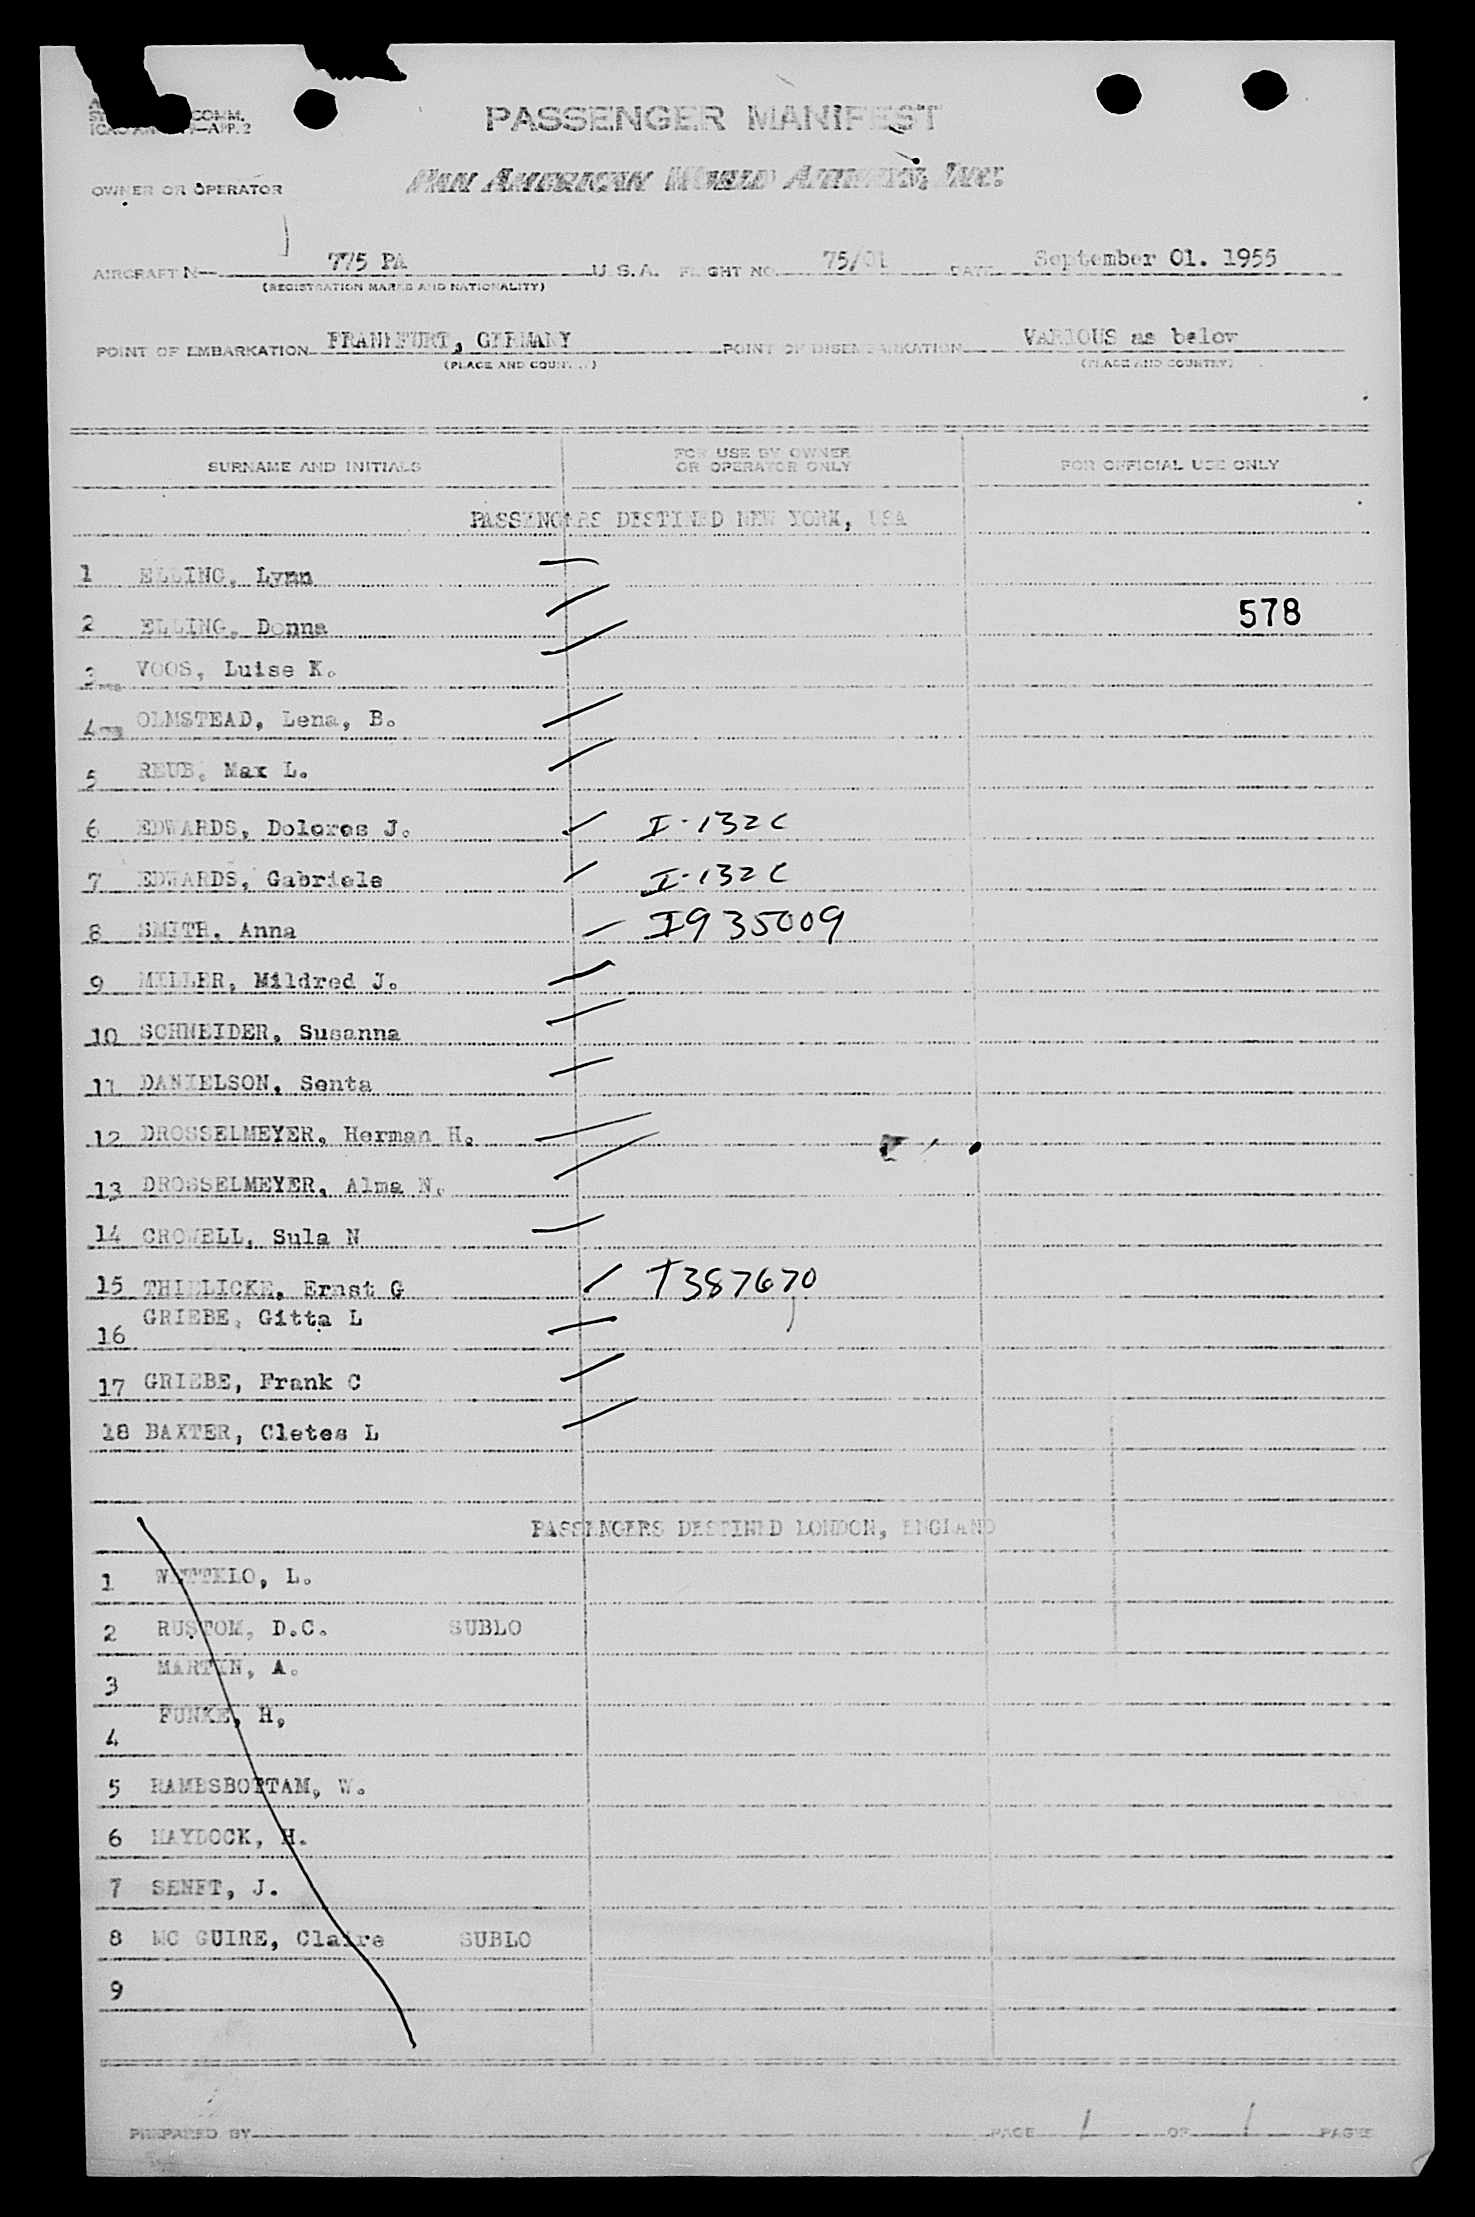 COMM.
ICAO AN —APP. 2
PASSENGER MANIFEST
OWNER OR OPERATOR PAN AMERICAN WORLD AIRWAYS, INC.
AIRCRAFT N— 775 PA U.S.A. FLIGHT NO. 75/01 DATE September 01. 1955
(REGISTRATION MARKS AND NATIONALITY)
POINT OF EMBARKATION FRANKFURT, GERMANY POINT OF DISEMBARKATION VARIOUS as below
(PLACE AND COUNTRY) (PLACE AND COUNTRY)
SURNAME AND INITIALS FOR USE BY OWNER OR OPERATOR ONLY FOR OFFICIAL USE ONLY
PASSENGERS DESTINED NEW YORK, USA
1 ELLING, Lynn
2 ELLING, Donna 578
3 VOOS, Luise K.
4 OLMSTEAD, Lena, B.
5 REUB, Max L.
6 EDWARDS, Dolores J. I-132C
7 EDWARDS, Gabriele I-132C
8 SMITH, Anna I935009
9 MILLER, Mildred J.
10 SCHNEIDER, Susanna
11 DANIELSON, Senta
12 DROSSELMEYER, Herman H.
13 DROSSELMEYER, Alma N.
14 CROWELL, Sula N
15 THIELICKE, Ernst G T387670
16 GRIEBE, Gitta L
17 GRIEBE, Frank C
18 BAXTER, Cletes L
PASSENGERS DESTINED LONDON, ENGLAND
1 L.
2 RUSTOM, D.C. SUBLO
3 MARTYN, A.
4 FUNKE, H,
5 RAMESBOTTAM, W.
6 HAYDOCK, H.
7 SENFT, J.
8 MC GUIRE, Claire SUBLO
9
PREPARED BY PAGE 1 OF 1 PAGES